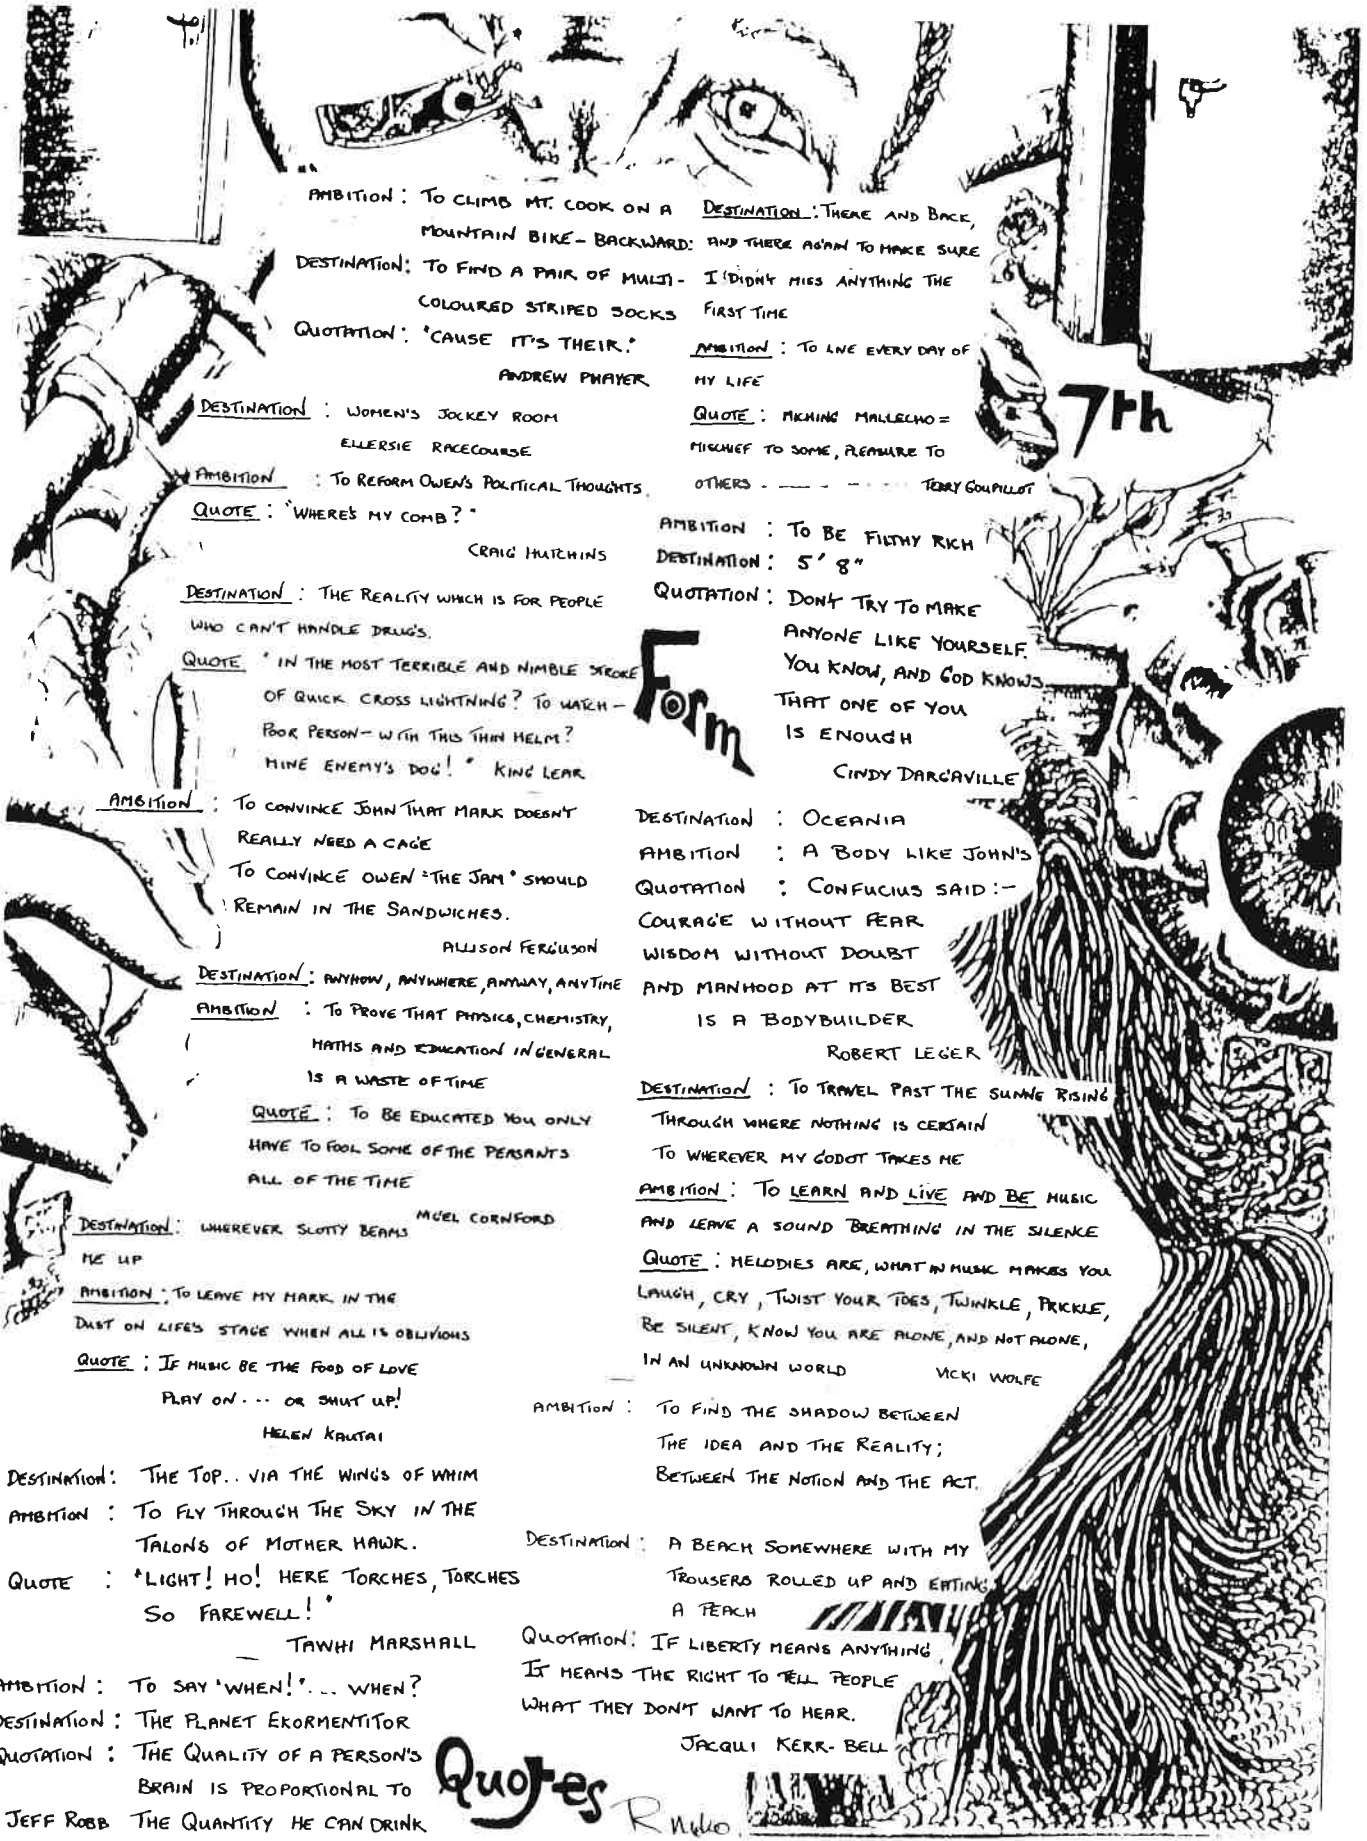 AMBITION : TO CLIMB MT. COOK ON A
MOUNTAIN BIKE – BACKWARD:
DESTINATION: TO FIND A PAIR OF MULTI-
COLOURED STRIPED SOCKS
QUOTATION : "CAUSE IT'S THEIR."
ANDREW PHAYER
DESTINATION : WOMEN'S JOCKEY ROOM
ELLERSIE RACECOURSE
AMBITION : TO REFORM OWEN'S POLITICAL THOUGHTS.
QUOTE : "WHERE'S MY COMB?"
CRAIG HUTCHINS
DESTINATION : THE REALITY WHICH IS FOR PEOPLE
WHO CAN'T HANDLE DRUG'S.
QUOTE " IN THE MOST TERRIBLE AND NIMBLE STROKE
OF QUICK CROSS LIGHTNING? TO WATCH –
POOR PERSON – WITH THIS THIN HELM?
MINE ENEMY'S DOG! " KING LEAR
AMBITION : TO CONVINCE JOHN THAT MARK DOESN'T
REALLY NEED A CAGE
TO CONVINCE OWEN "THE JAM" SHOULD
REMAIN IN THE SANDWICHES.
ALLISON FERGUSON
DESTINATION : ANYHOW, ANYWHERE, ANYWAY, ANYTIME
AMBITION : TO PROVE THAT PHYSICS, CHEMISTRY,
MATHS AND EDUCATION IN GENERAL
IS A WASTE OF TIME
QUOTE : TO BE EDUCATED YOU ONLY
HAVE TO FOOL SOME OF THE PEASANTS
ALL OF THE TIME
CORNFORD
DESTINATION : WHEREVER SLOTTY BEAMS
ME UP
AMBITION : TO LEAVE MY MARK IN THE
DUST ON LIFE'S STAGE WHEN ALL IS OBLIVIOUS
QUOTE : IF MUSIC BE THE FOOD OF LOVE
PLAY ON ... OR SHUT UP!
HELEN KAUTAI
DESTINATION: THE TOP.. VIA THE WINGS OF WHIM
AMBITION : TO FLY THROUGH THE SKY IN THE
TALONS OF MOTHER HAWK.
QUOTE : "LIGHT! HO! HERE TORCHES, TORCHES
SO FAREWELL! "
TAWHI MARSHALL
AMBITION : TO SAY "WHEN!" ... WHEN?
DESTINATION : THE PLANET EKORMENTITOR
QUOTATION : THE QUALITY OF A PERSON'S
BRAIN IS PROPORTIONAL TO
JEFF ROBB THE QUANTITY HE CAN DRINK
DESTINATION : THERE AND BACK,
AND THERE AGAIN TO MAKE SURE
I DIDN'T MISS ANYTHING THE
FIRST TIME
AMBITION : TO LIVE EVERY DAY OF
MY LIFE
QUOTE : MICHING MALLECHO =
MISCHIEF TO SOME, PLEASURE TO
OTHERS - - - - - TERRY GOUPILLOT
7th
AMBITION : TO BE FILTHY RICH
DESTINATION : 5' 8"
QUOTATION : DON'T TRY TO MAKE
ANYONE LIKE YOURSELF.
YOU KNOW, AND GOD KNOWS
THAT ONE OF YOU
IS ENOUGH
CINDY DARGAVILLE
Form
DESTINATION : OCEANIA
AMBITION : A BODY LIKE JOHN'S
QUOTATION : CONFUCIUS SAID :-
COURAGE WITHOUT FEAR
WISDOM WITHOUT DOUBT
AND MANHOOD AT ITS BEST
IS A BODYBUILDER
ROBERT LEGER
DESTINATION : TO TRAVEL PAST THE SUNNE RISING
THROUGH WHERE NOTHING IS CERTAIN
TO WHEREVER MY GODOT TAKES ME
AMBITION : TO LEARN AND LIVE AND BE MUSIC
AND LEAVE A SOUND BREATHING IN THE SILENCE
QUOTE : MELODIES ARE, WHAT IN MUSIC MAKES YOU
LAUGH, CRY, TWIST YOUR TOES, TWINKLE, PRICKLE,
BE SILENT, KNOW YOU ARE ALONE, AND NOT ALONE,
IN AN UNKNOWN WORLD VICKI WOLFE
AMBITION : TO FIND THE SHADOW BETWEEN
THE IDEA AND THE REALITY;
BETWEEN THE NOTION AND THE ACT.
DESTINATION : A BEACH SOMEWHERE WITH MY
TROUSERS ROLLED UP AND EATING
A PEACH
QUOTATION: IF LIBERTY MEANS ANYTHING
IT MEANS THE RIGHT TO TELL PEOPLE
WHAT THEY DON'T WANT TO HEAR.
JACQUI KERR-BELL
Quotes